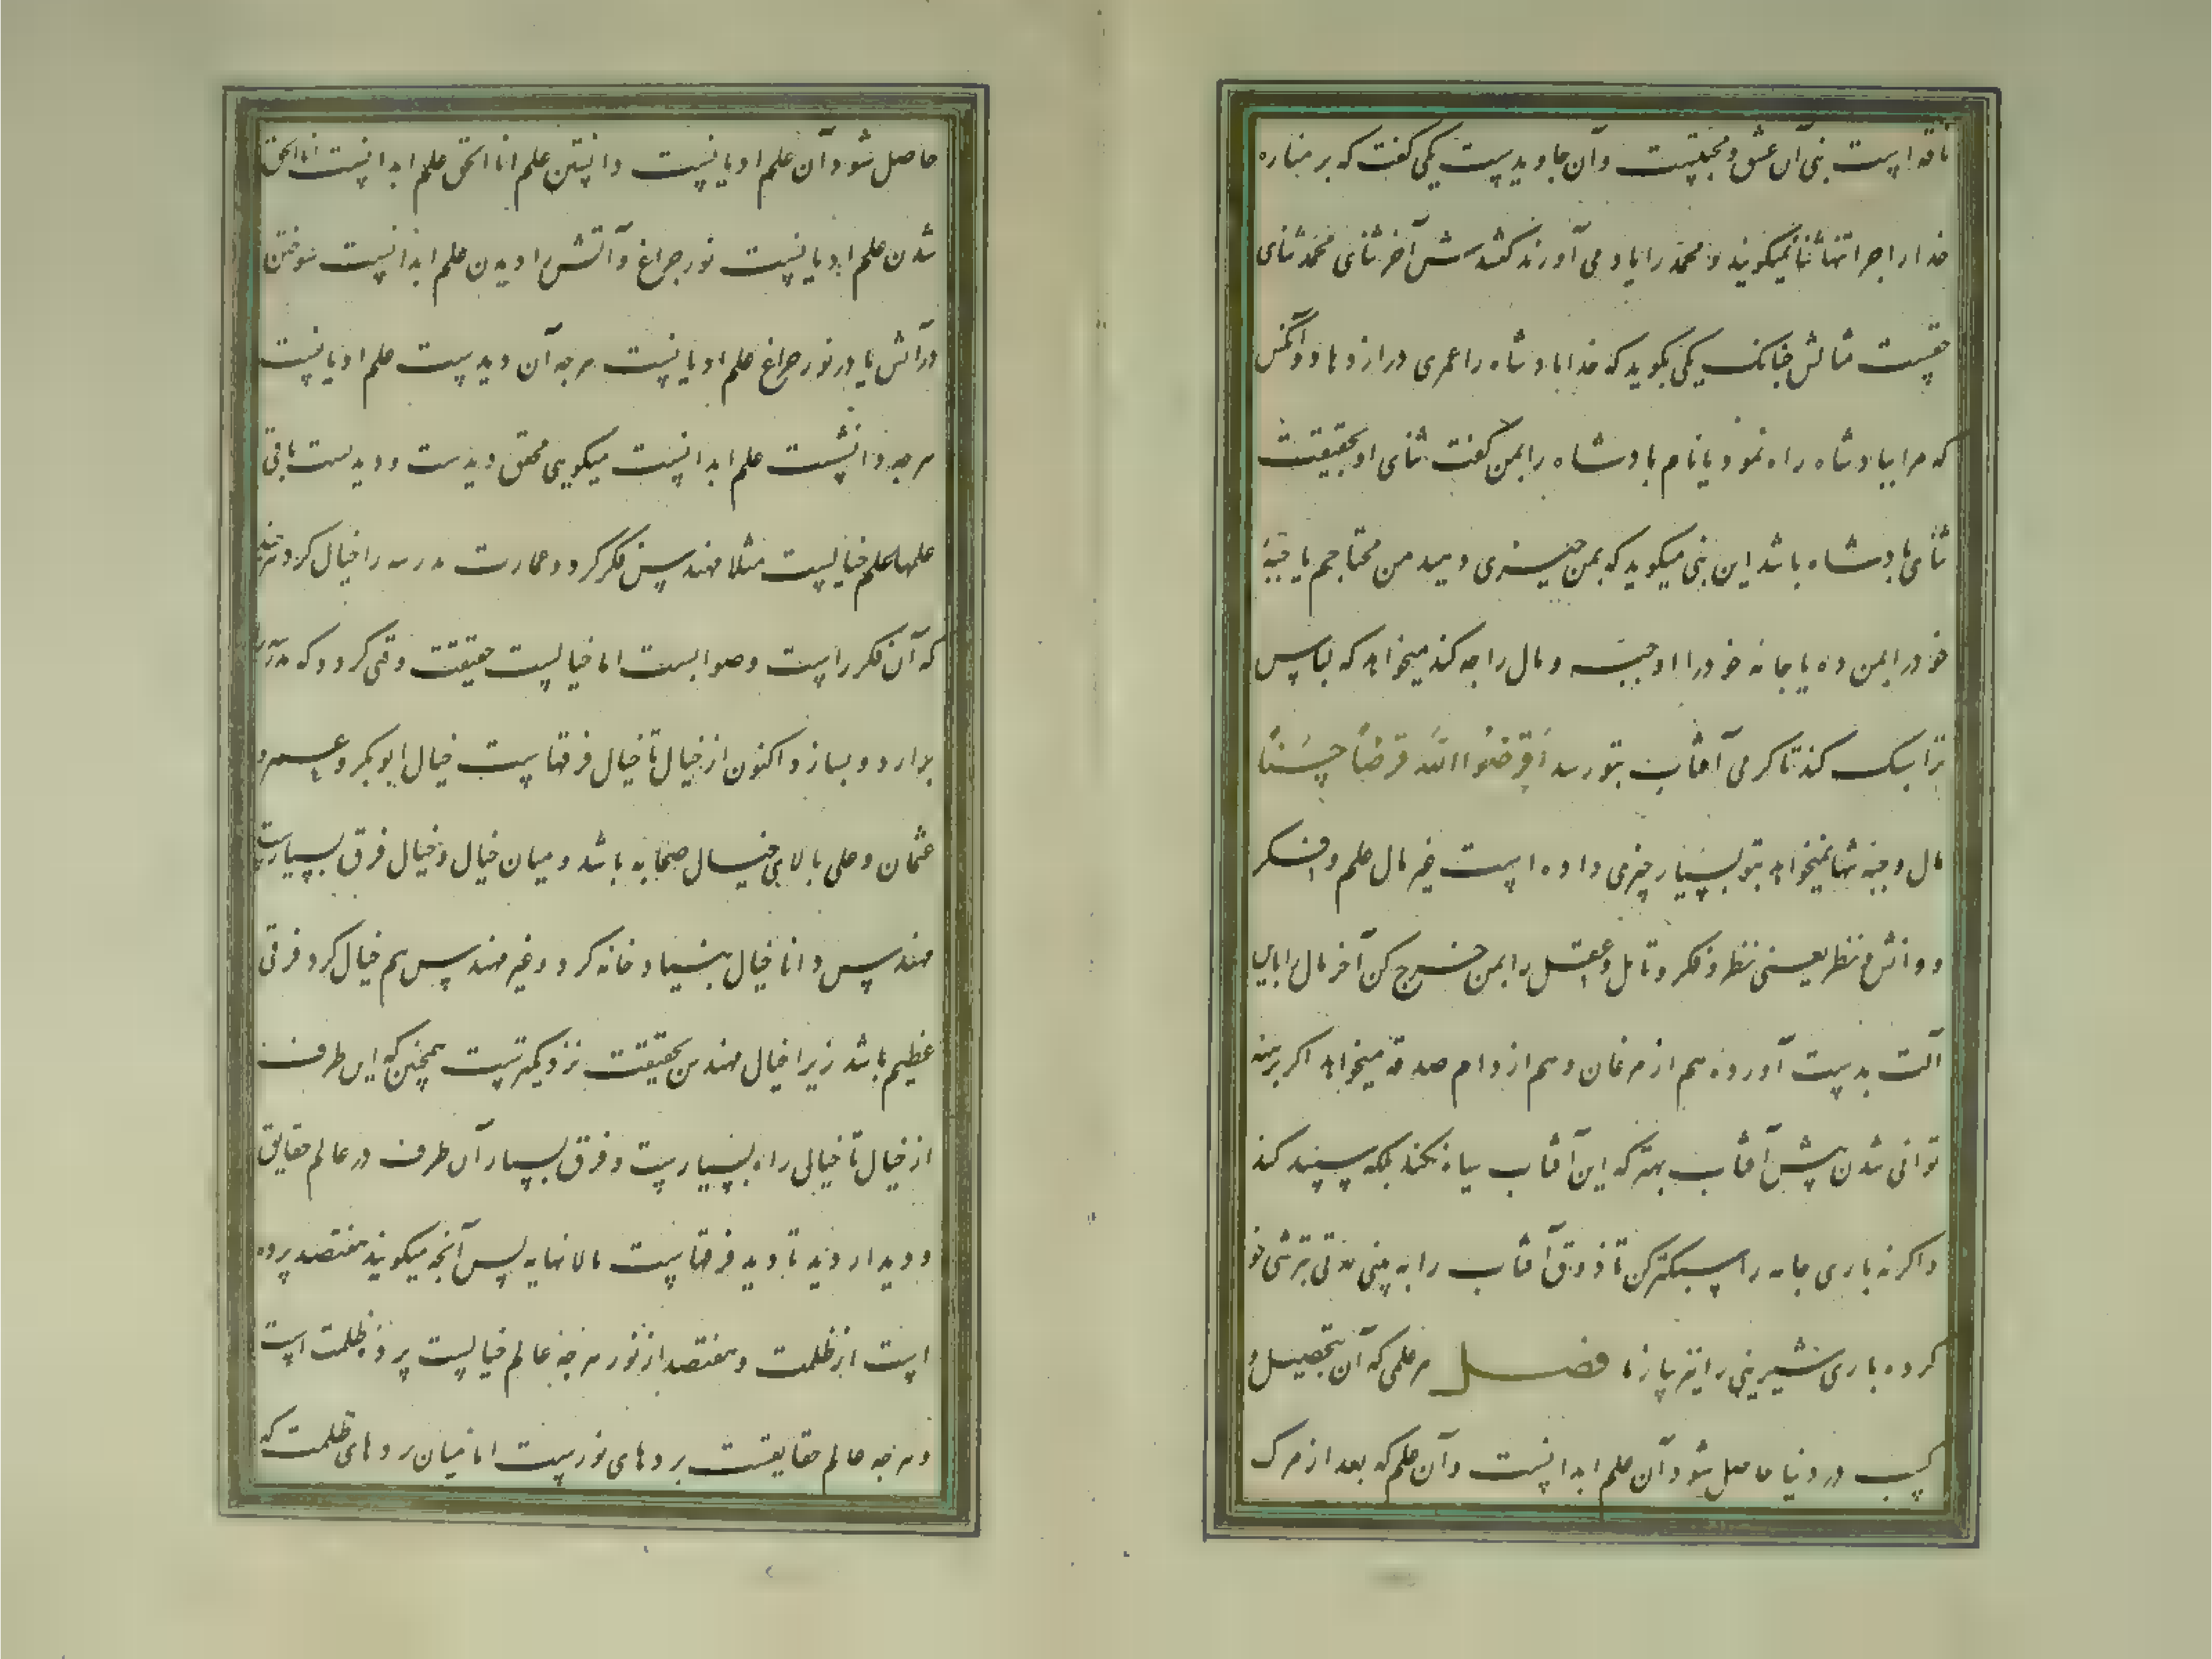 ناقه است بنی آن عشق و محبتست و آن جاویدست یکی گفت که بر مناره
خدا را چرا تنها ثنا نمیگویند و محمد را یاد می آورند گفتندش آخر ثنای محمد ثنای
حقست مثالش چنانک یکی بگوید که خدا بادشاه را عمری دراز دهاد و آنکس
که مرا ببادشاه راه نمود یا نام بادشاه را بمن گفت ثنای او بحقیقت
ثنای بادشاه باشد این بنی میگوید که بمن چیزی دهید من محتاجم یا جبه
خود را بمن ده یا جامه خود را او جبه و مال را چه کند میخواهد که لباس
ترا سبک کند تا کرمی آفتاب بتو رسد اَقرِضُوا اللّه قرضاً حسَناً
مال و جبه تنها نمیخواهد بتو بسیار چیزی داده است غیر مال علم و فکر
و دانش و نظر یعنی نظر و فکر و تامل و عقل را بمن خرج کن آخر مال را باین
آلت بدست آورده هم از مرغان و هم از دام صدقه میخواهد اکر برهنه
توانی شدن پیش آفتاب بهتر که این آفتاب سیاه نکند بلکه سپید کند
و اکر نه باری جامه را سبکتر کن تا ذوق آفتاب را به بینی مدتی بترشی خو
کرده باری شیرینی را نیز بیازما فصل هر علمی که آن بتحصیل و
کسب در دنیا حاصل شود آن علم ابدانست و آن علم که بعد از مرک
حاصل شود آن علم ادیانست دانستن علم انا الحق علم ابدانست انا الحق
شدن علم ادیانست نور چراغ و آتش را دیدن علم ابدانست سوختن
در آتش یا در نور چراغ علم ادیانست هرچه آن دیدست علم ادیانست
هرچه دانشست علم ابدانست میکویی محقق دیدست و دیدست باقی
علمها علم خیالست مثلا مهندس فکر کرد و عمارت مدرسه را خیال کرد هرچند
که آن فکر راست و صوابست اما خیالست حقیقت وقتی کردد که مدرسه را
برارد و بسازد اکنون از خیال تا خیال فرقهاست خیال ابوبکر و عمر و
عثمان و علی بالای خیال صحابه باشد و میان خیال و خیال فرق بسیارست
مهندس دانا خیال بنیاد خانه کرد و غیر مهندس هم خیال کرد فرقی
عظیم باشد زیرا خیال مهندس بحقیقت نزدیکترست همچنین که این طرف
از خیال تا خیالی راه بسیارست و فرق بسیار آن طرف در عالم حقایق
و دیدار دید تا دید فرقهاست مالا نهایه پس آنچه میکویند هفتصد پرده
است از ظلمت و هفتصد از نور هرچه عالم خیالست پرده ظلمت است
و هرچه عالم حقایقست پردهای نورست اما میان پردهای ظلمت که